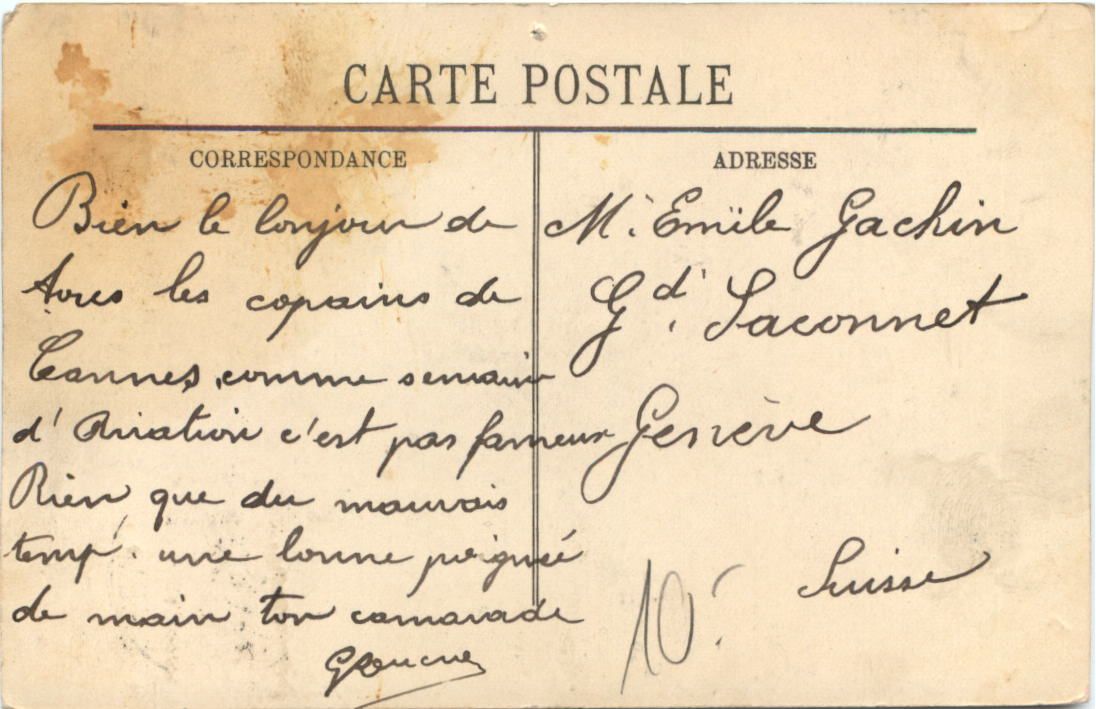 CARTE POSTALE
CORRESPONDANCE
Bien le bonjour de
tous les copains de
Cannes, comme semaine
d'Aviation c'est pas fameux
Rien que du mauvais
temp. une bonne poignée
de main ton camarade
ADRESSE
Mr. Emile Gachin
Gd. Saconnet
Genève
Suisse
10.